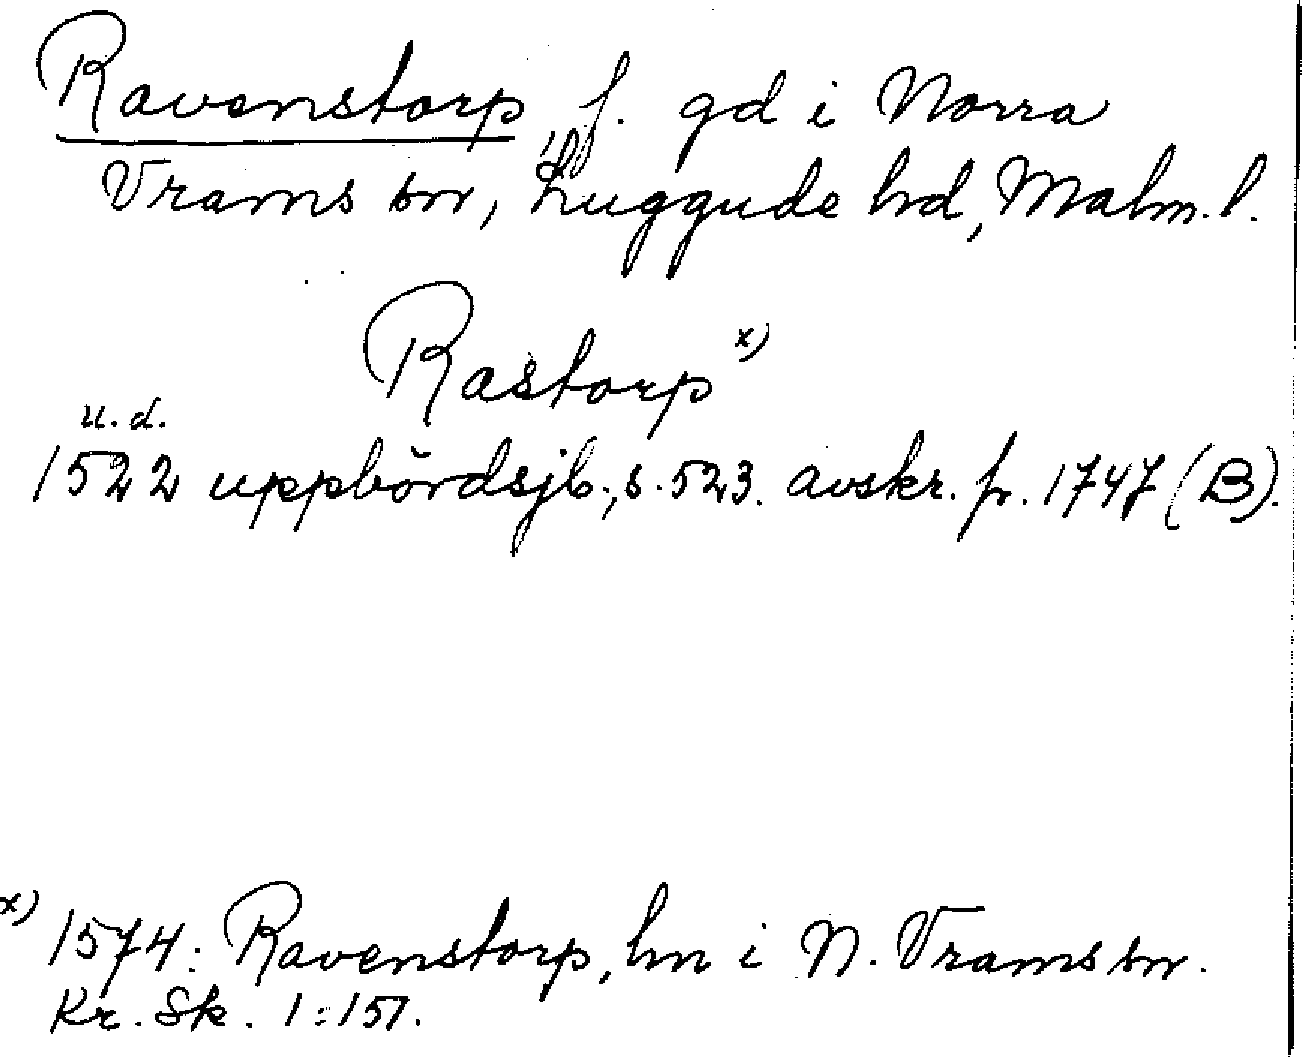 Ravenstorp, f. gd i Norra
Vrams sn, Luggude hd, Malm. l.
Rastorp x)
u. d.
1522 uppbördsjb., s. 523. avskr. fr. 1747 (B).
x) 1574: Ravenstorp, hm i N. Vrams sn.
Kr. Sk. 1:151.